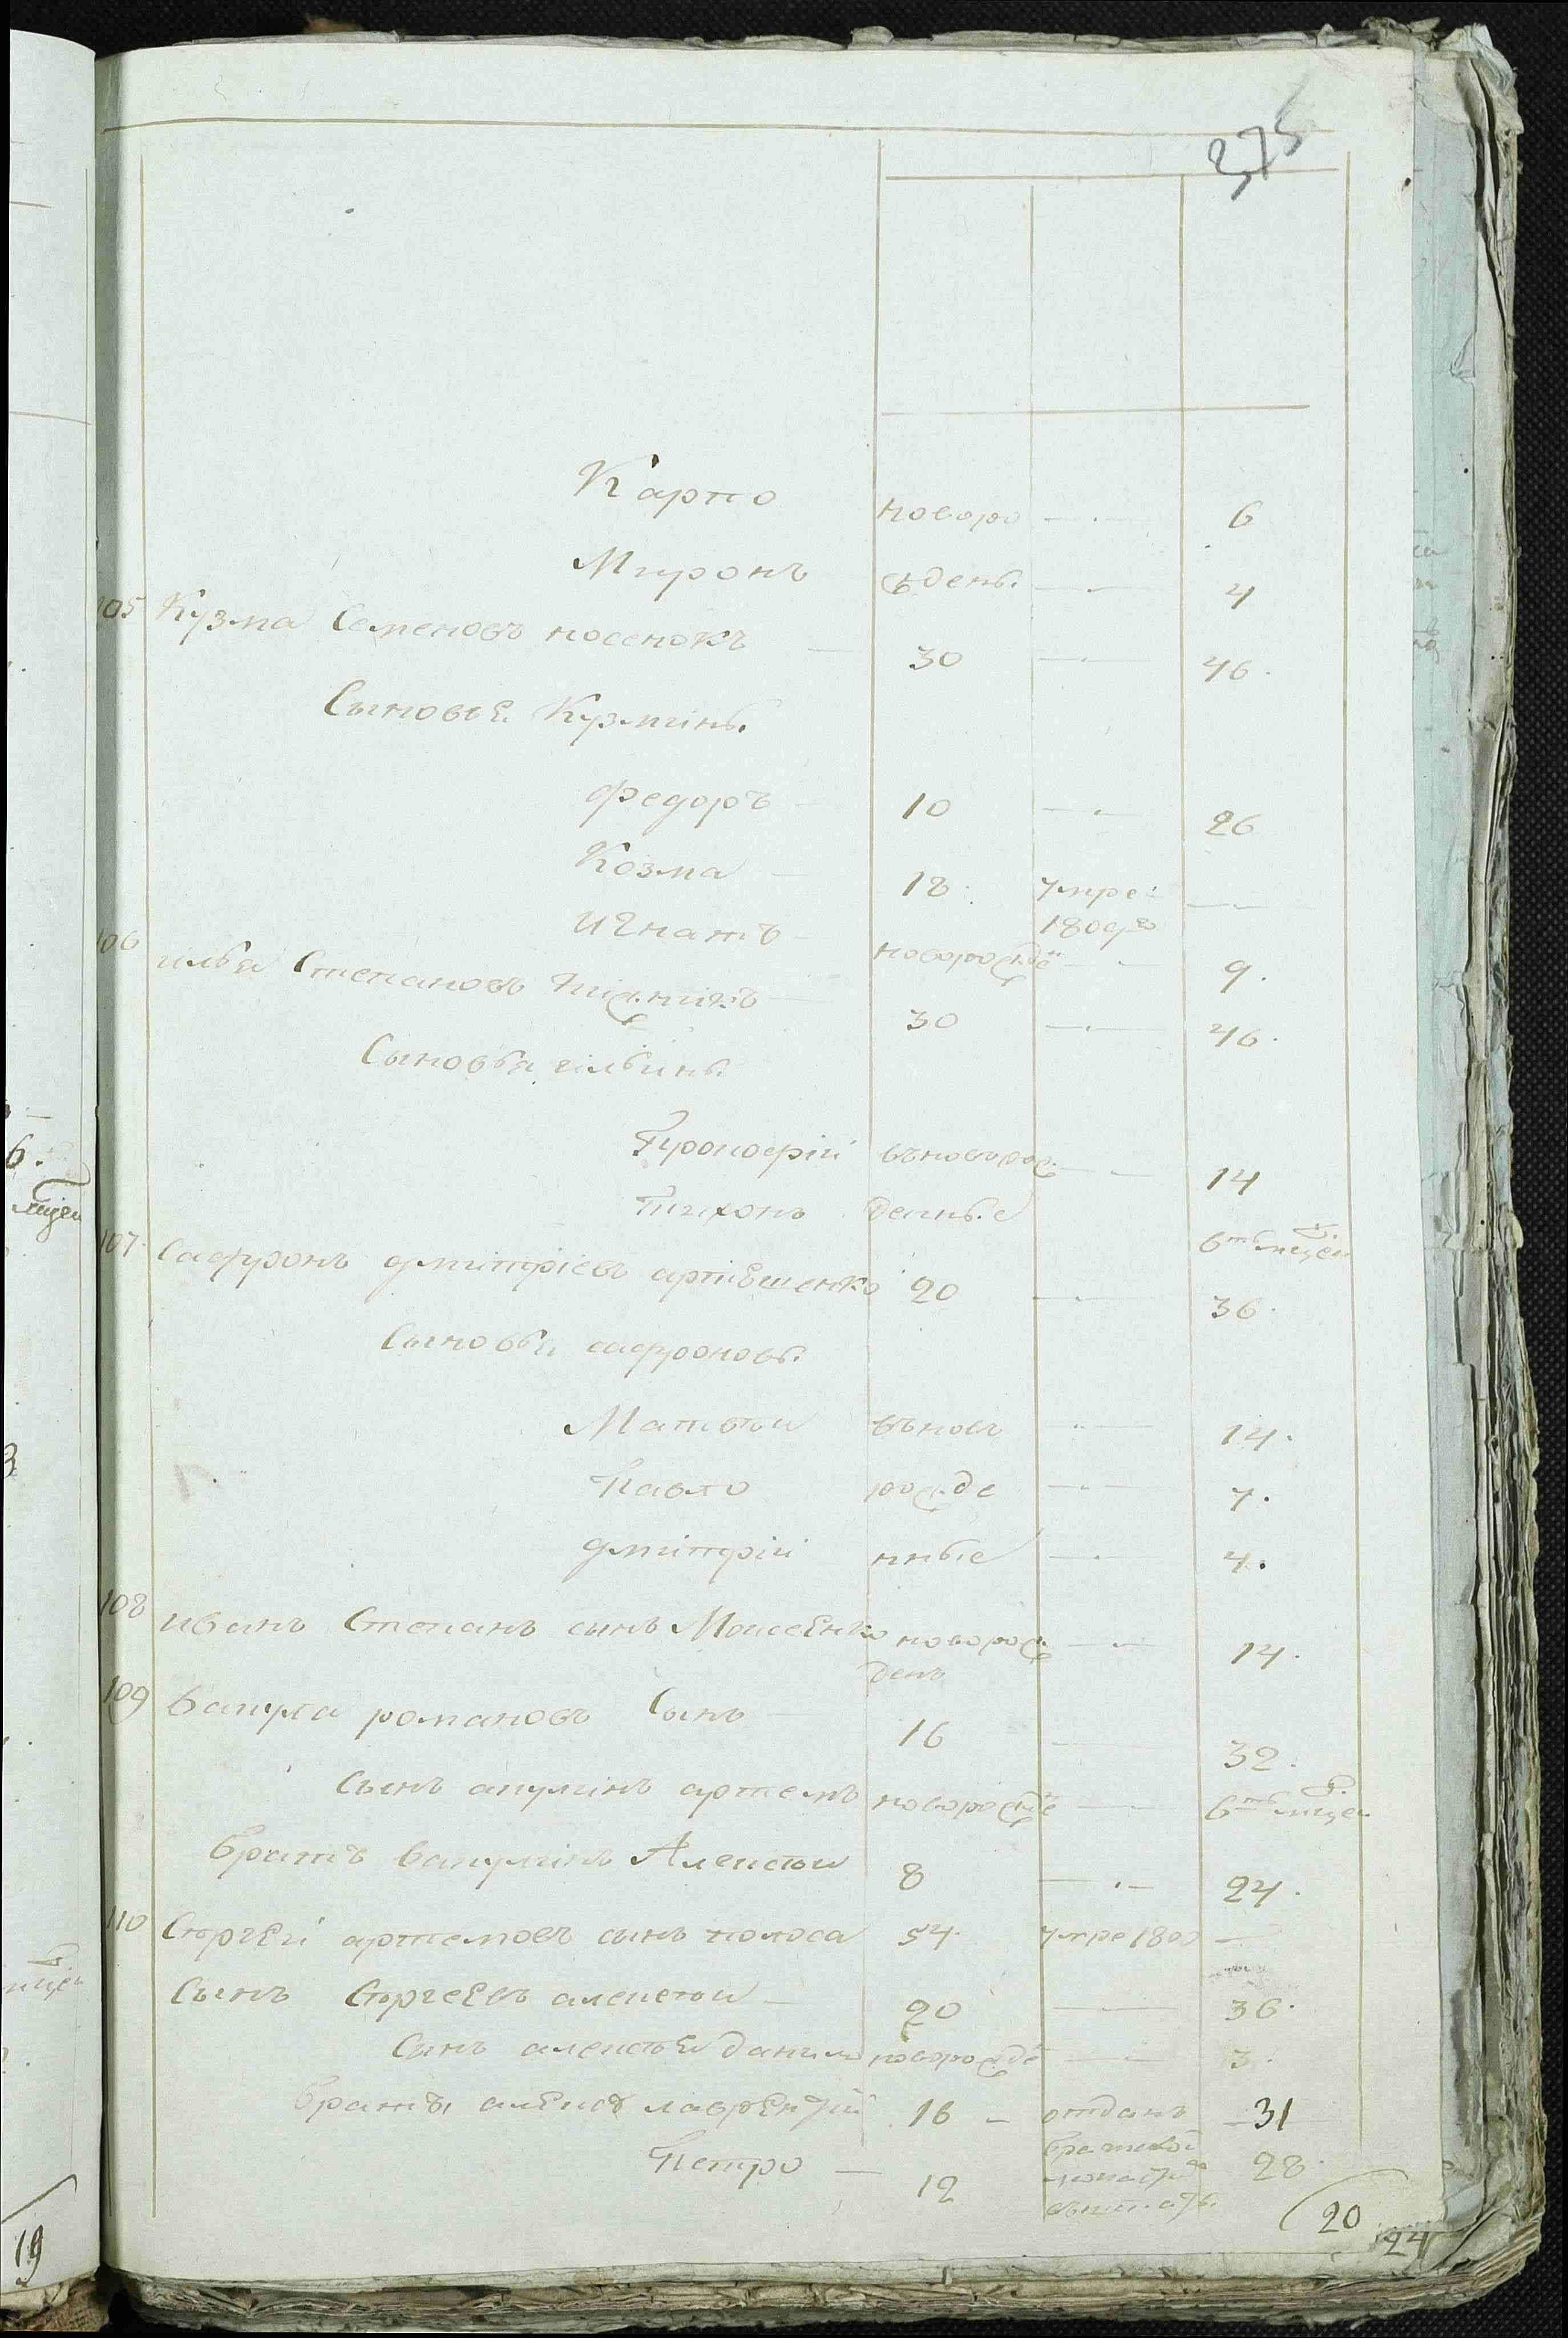 375
Карпо новоро — 6
Миронъ жденъ. — 4
105 Кузма Семеновъ носенокъ — 30 — 46.
Сыновья Кузмины
федоръ — 10 — 26
Козма — 12. умре
180 —
Игнатъ — новорожде — 9.
106 илья Степановъ — 30 — 46.
Сыновья ильины
Прокофій вновьрож — 14
Тихонъ денные 6ть мцей
107. Сафронъ дмитріевъ артюшенко 20 — 36.
Сыновья сафроновы
Матвѣй вновь — 14.
Павло рожде — 7.
дмитрій нные — 4.
108 иванъ Степанъ сынъ Моисеенко новорож — 14.
денъ
109 Вакула романовъ Сынъ — 16 — 32.
сынъ акулинъ артемъ новорожде — 6ть мцей
братъ вакулинъ Алексѣй 8 — 24.
110 Сергей артемовъ сынъ полоса 54. умре 180 —
Сынъ Сергеевъ алексѣй — 20 — 36.
Сынъ алексѣя данило новорожде — 3.
братъ алексѣ лаврентій 16 — отданъ — 31
братской
Петро — 12 монастр 28.
20
24
6.
мцей
19